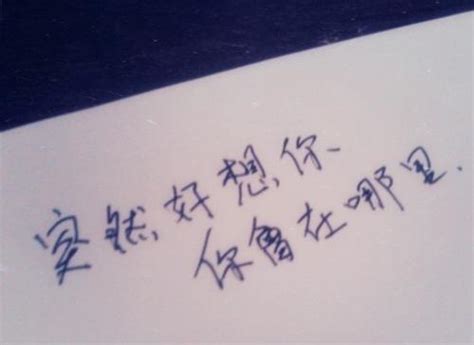 突然好想你
你會在哪里